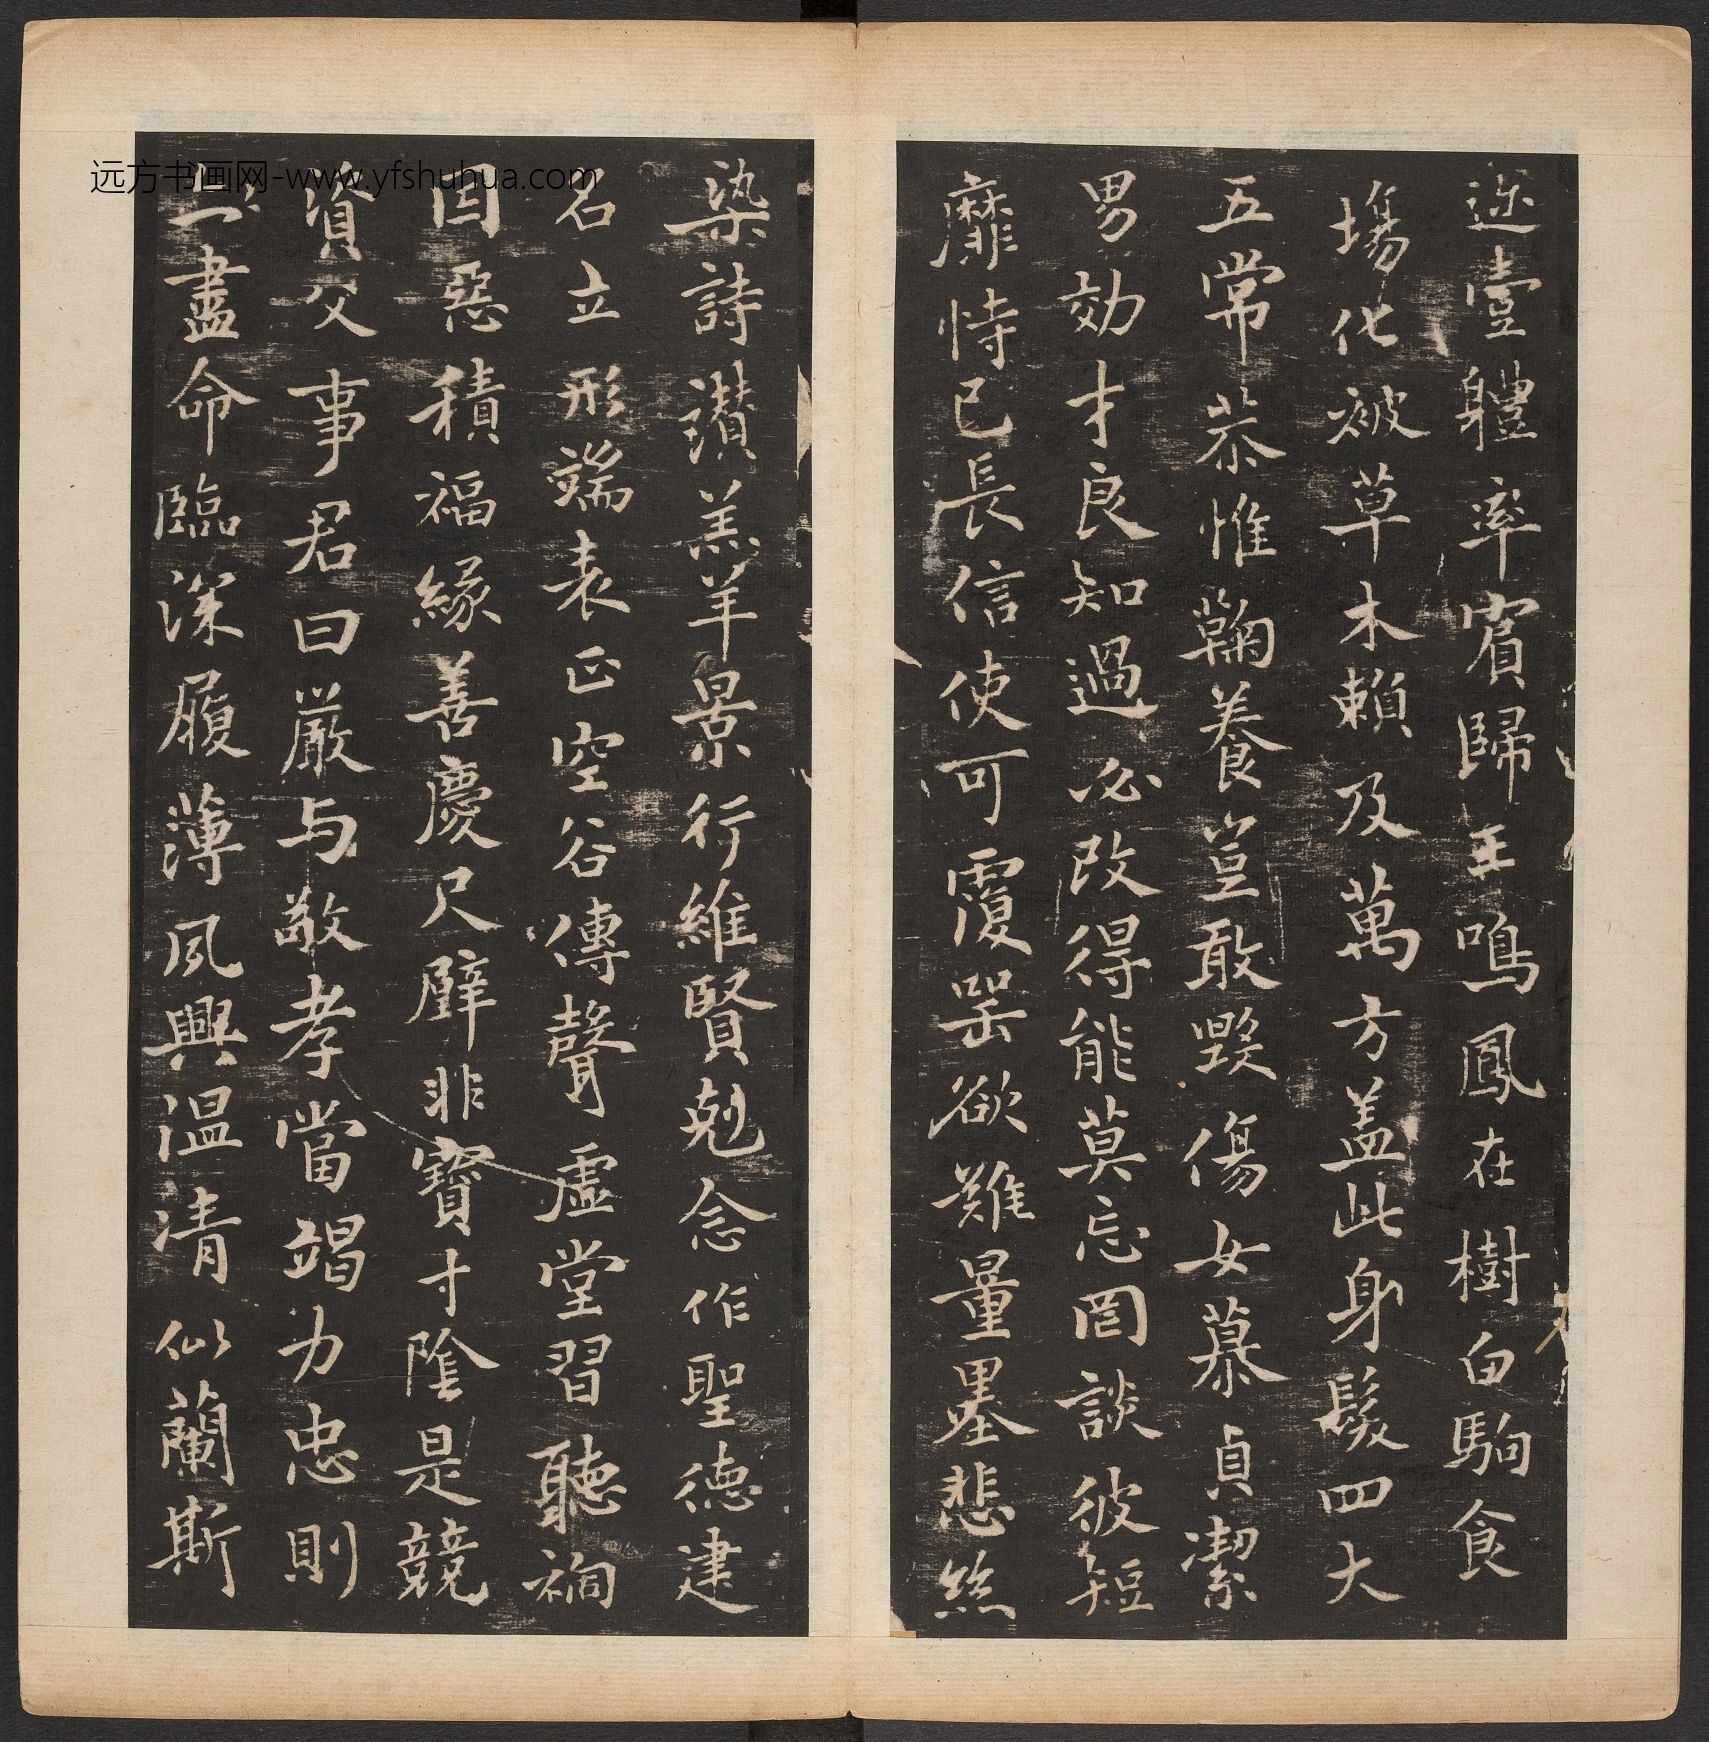 迩壹軆率賓歸王鳴鳳在樹白駒食
塲化被草木賴及萬方盖此身髮四大
五常恭惟鞠養豈敢毀傷女慕貞潔
男効才良知過必改得能莫忘罔談彼短
靡恃己長信使可覆器欲難量墨悲絲
染詩讃羔羊景行維賢尅念作聖德建
名立形端表正空谷傳聲虛堂習聽禍
因惡積福緣善慶尺璧非寶寸陰是競
資父事君曰嚴与敬孝當竭力忠則
盡命臨深履薄夙興温清似蘭斯
远方书画网-www.yfshuhua.com